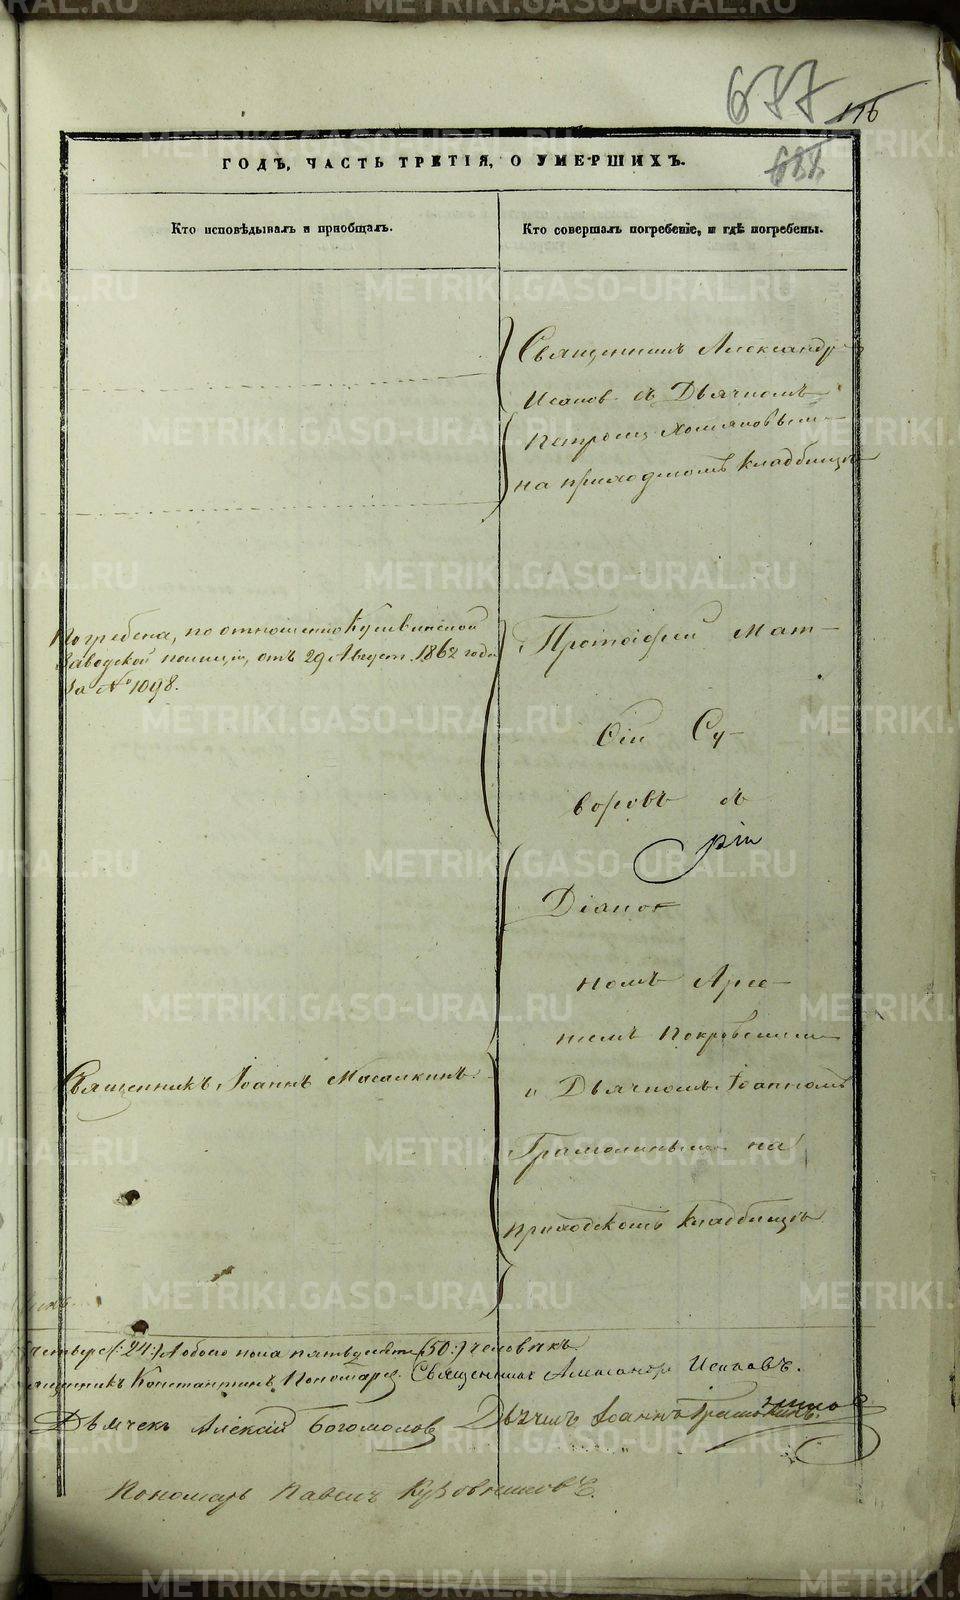 677
176
688
ГОДЪ, ЧАСТЬ ТРЕТІЯ, О УМЕРШИХЪ.
Кто исповѣдывалъ и пріобщалъ.
Кто совершалъ погребеніе, и гдѣ погребены.
Священникъ Александръ
Исаковъ съ Дьячкомъ
Петромъ
на приходскомъ кладбищѣ
Погребена, по отношенію Кушвинской
Заводской полиціи, отъ 29 Август. 1862 года
за № 1098.
Протоіерей Мат-
фій Су-
воровъ съ
Діакон
номъ Арсе-
ніемъ Покровскимъ
Священникъ Іоаннъ Масалкинъ.
и Дьячкомъ Іоанномъ
Грамолинымъ на
приходскомъ кладбищѣ
четыре (:24:) А обоего пола пятьдесятъ (:50:) человѣкъ
ященникъ Константинъ Пономарев. Священникъ Александръ Исаковъ.
Дьячекъ Алексій Богомолов Дьячекъ Іоаннъ
Пономарь Павелъ
METRIKI.GASO-URAL.RU